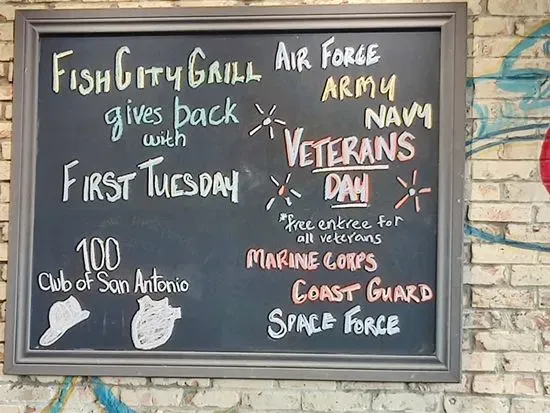 FISH CITY GRILL
gives back
with
FIRST TUESDAY
100
Club of San Antonio
AIR FORCE
ARMY
NAVY
VETERANS
DAY
*free entree for
all veterans
MARINE CORPS
COAST GUARD
SPACE FORCE